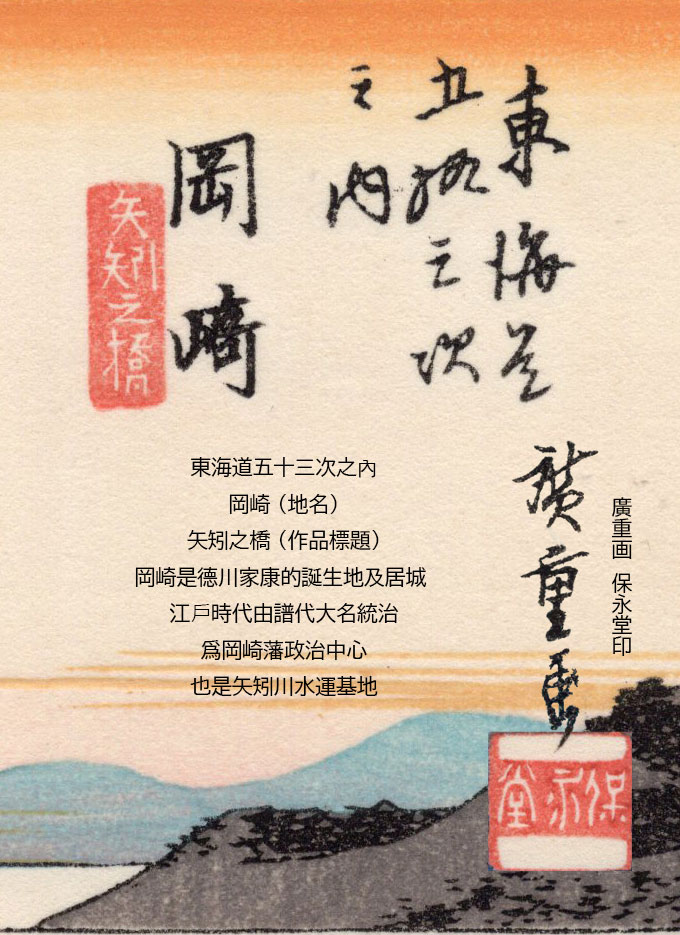 東海道
五拾三次
之内
岡崎
矢矧之橋
廣重画
保永堂
東海道五十三次之內
岡崎（地名）
矢矧之橋（作品標題）
岡崎是德川家康的誕生地及居城
江戶時代由譜代大名統治
爲岡崎藩政治中心
也是矢矧川水運基地
廣重画 保永堂印